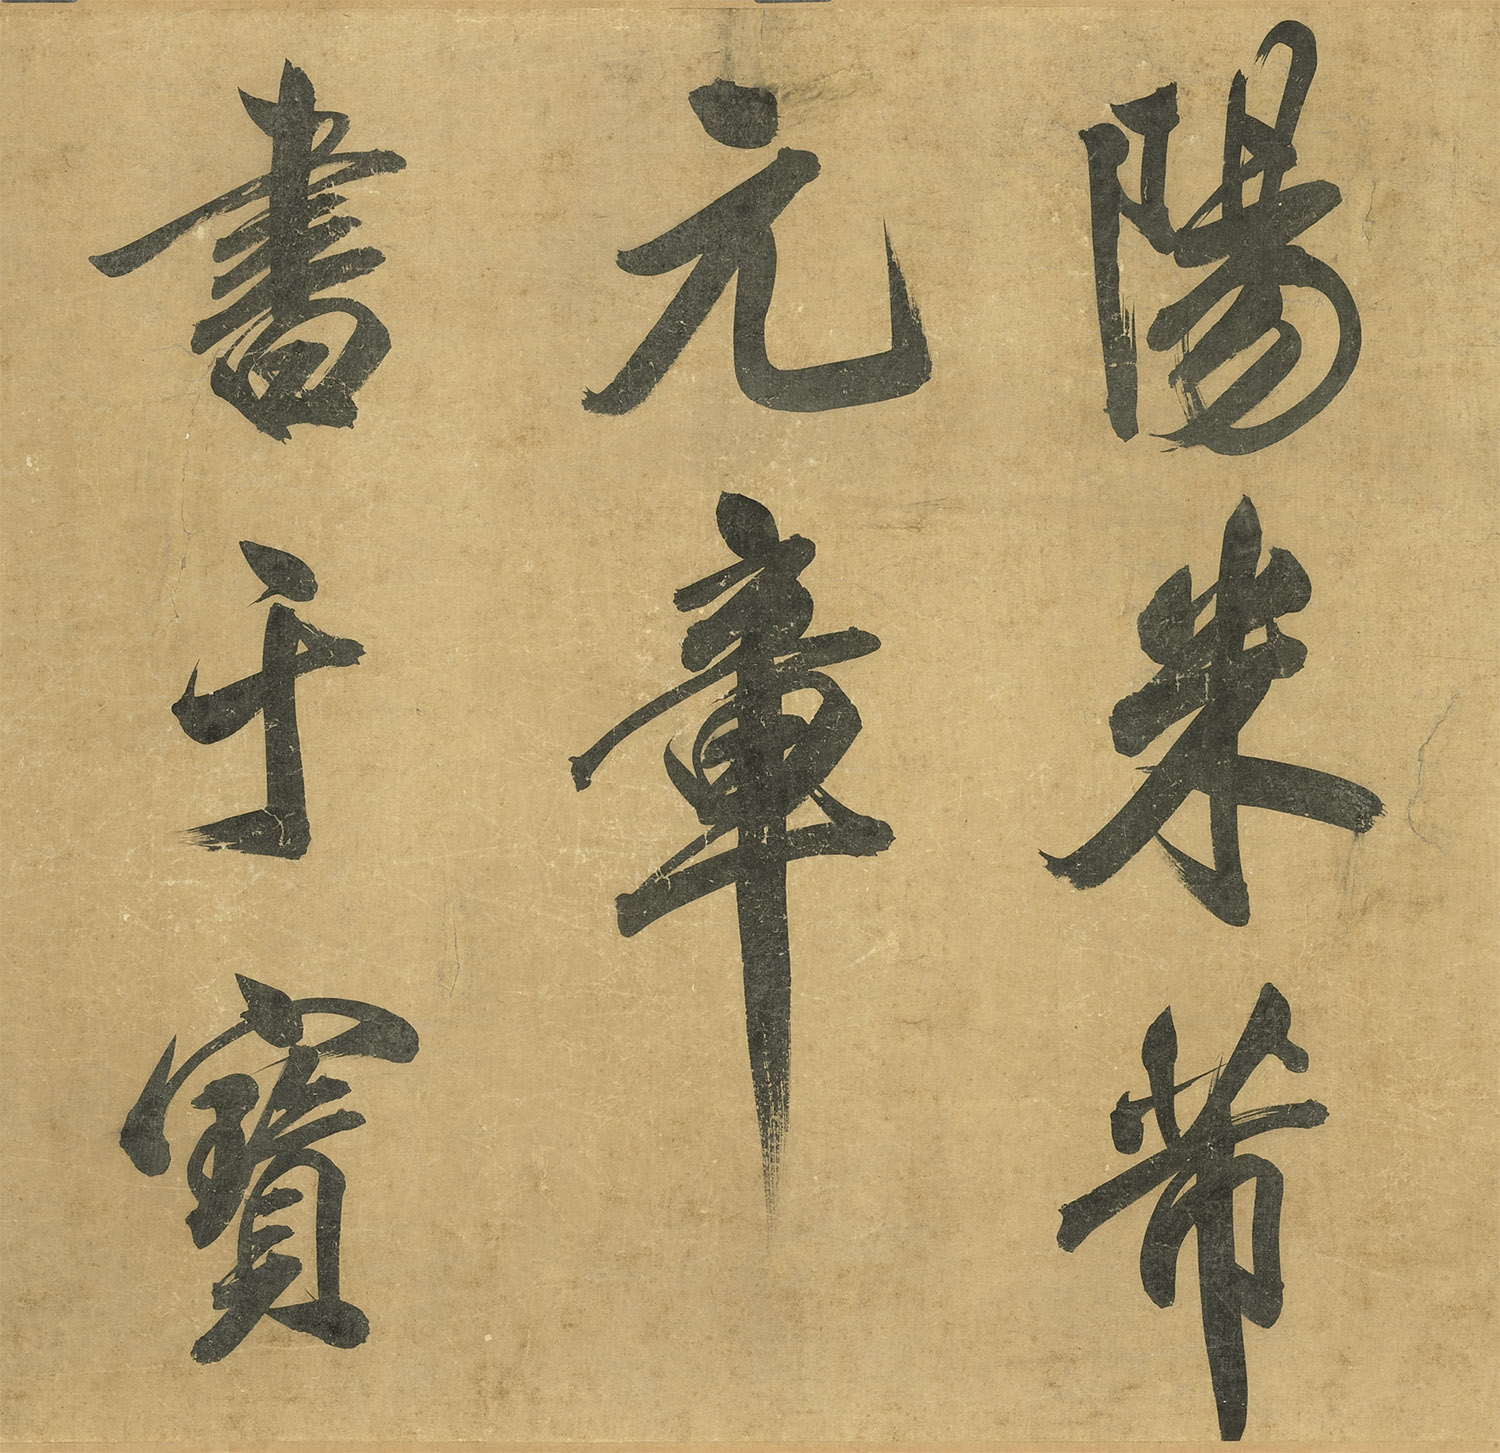 陽米芾
元章
書于寶